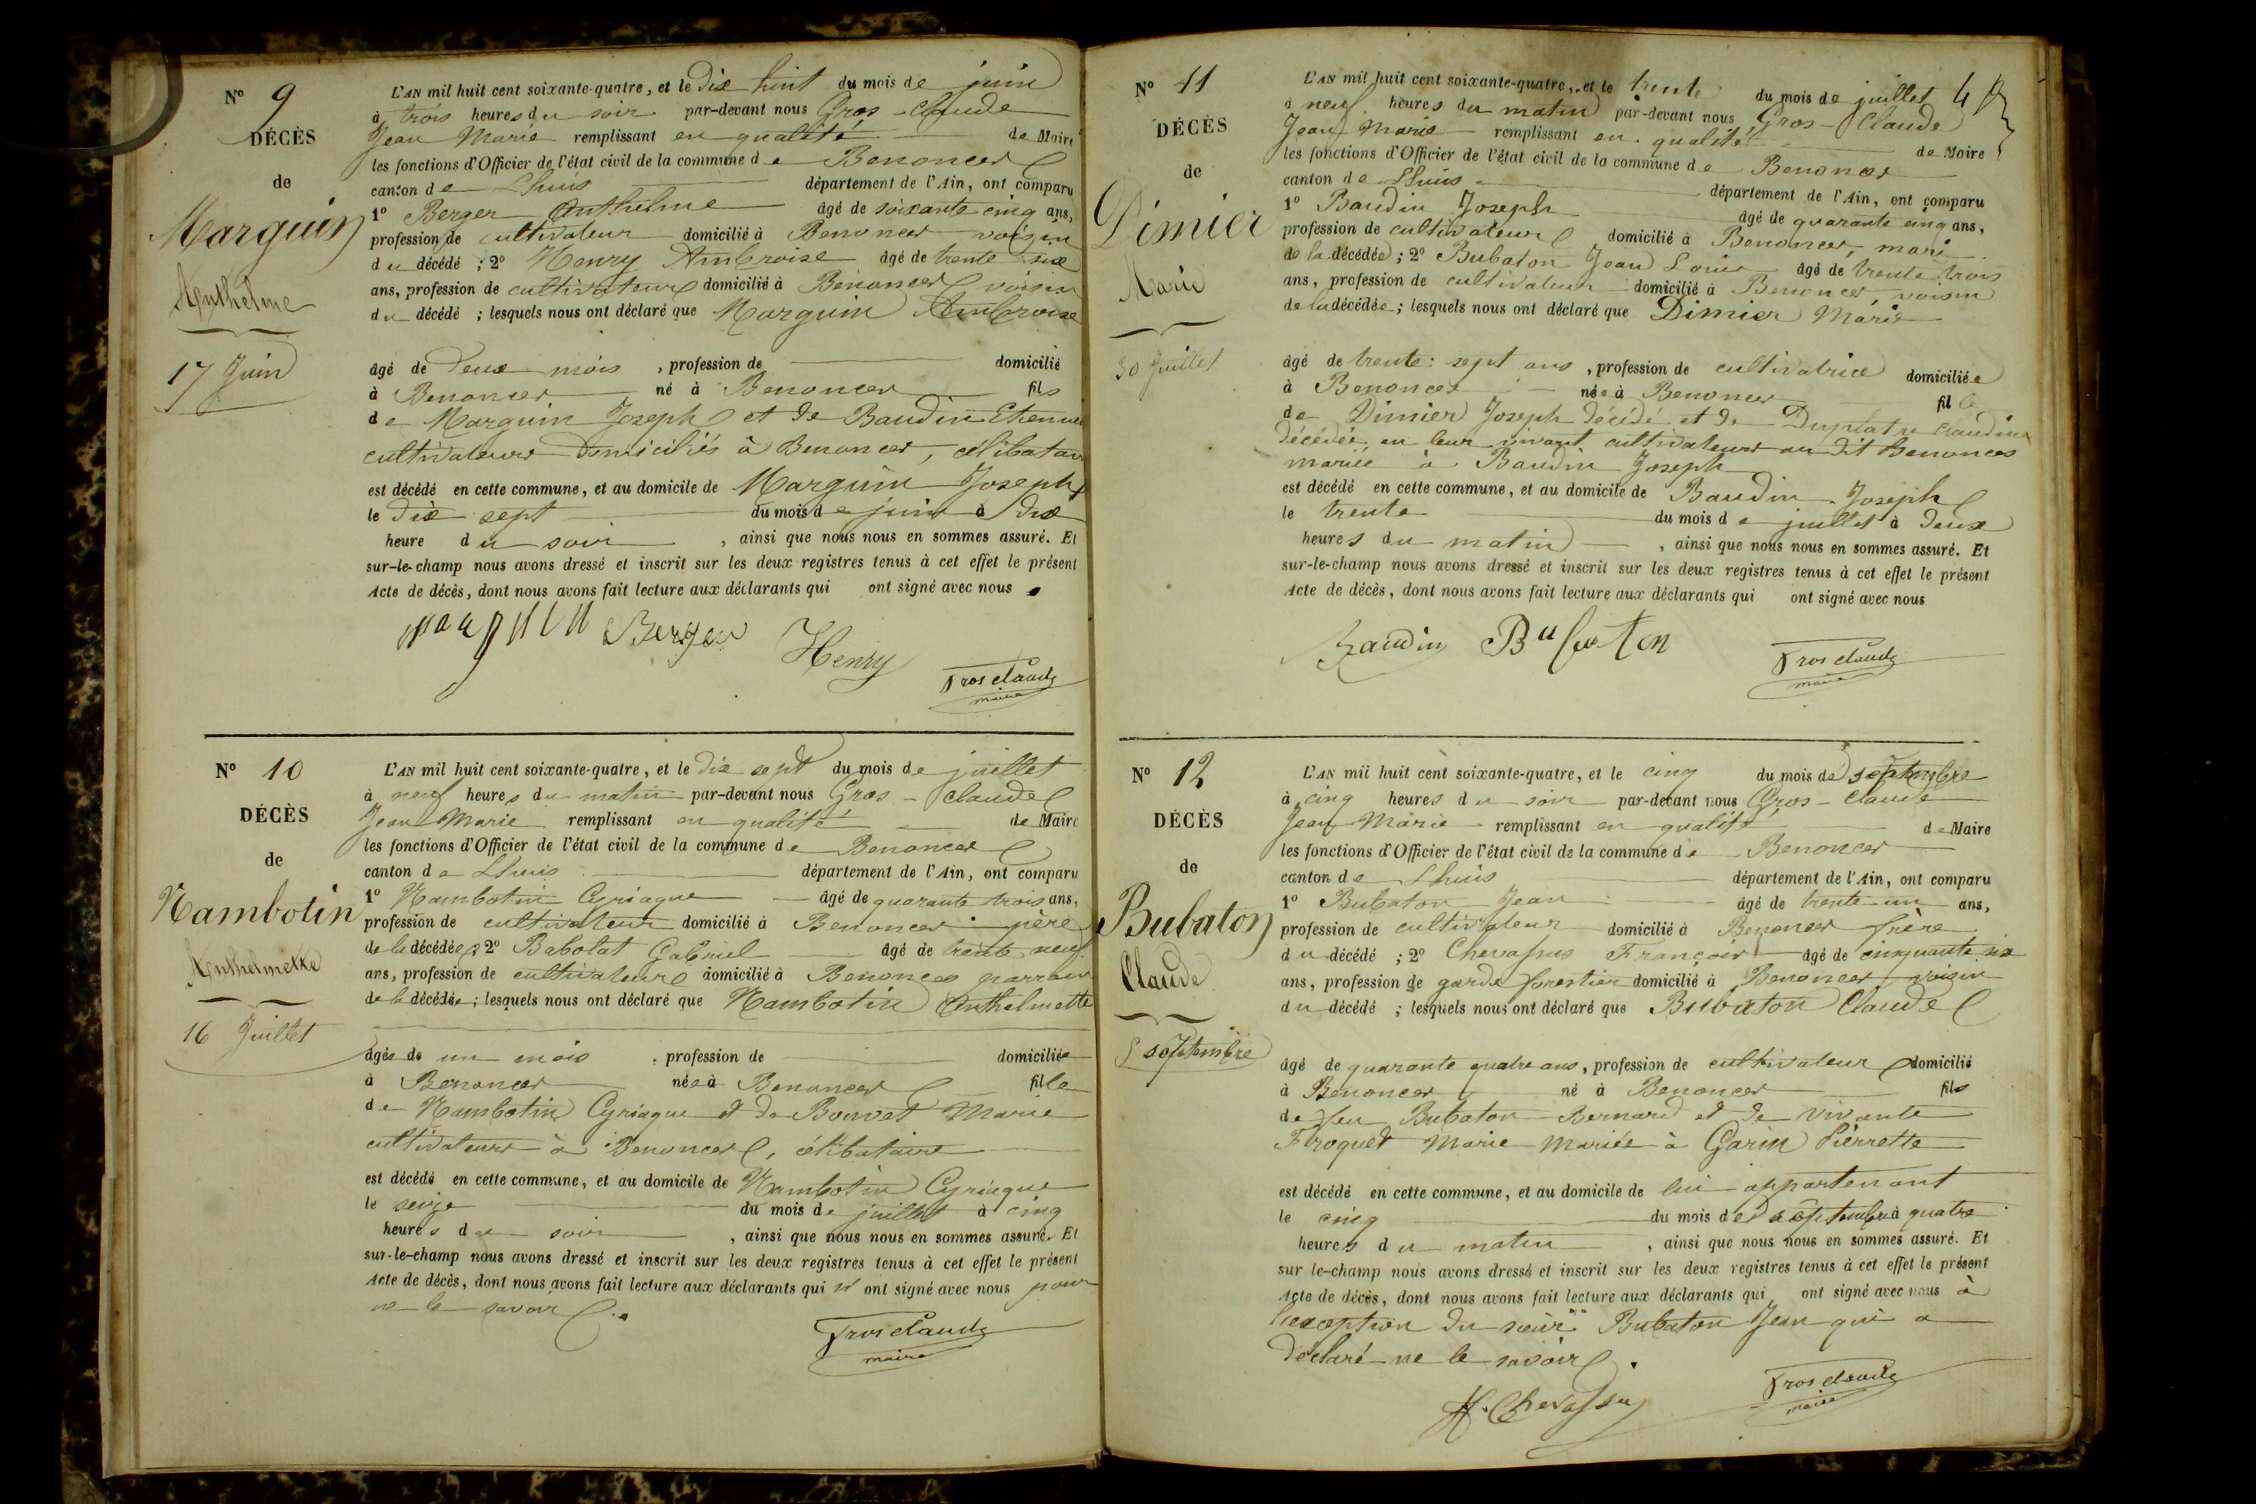 N° 9
DÉCÈS
de
Marguin
Anthelme
17 Juin
L'AN mil huit cent soixante-quatre, et le dix huit du mois de juin
à trois heures du soir par-devant nous Gros-Claude
Jean Marie remplissant en qualité de Maire
les fonctions d'Officier de l'état civil de la commune de Benonces
canton de Lhuis département de l'Ain, ont comparu
1° Berger Anthelme âgé de soixante cinq ans,
profession de cultivateur domicilié à Benonces voisin
du décédé ; 2° Henry Ambroise âgé de trente six
ans, profession de cultivateur domicilié à Benonces voisin
du décédé ; lesquels nous ont déclaré que Marguin Ambroise
âgé de deux mois , profession de domicilié
à Benonces né à Benonces fils
de Marguin Joseph et de Baudin Etiennette
cultivateurs domiciliés à Benonces, célibataire
est décédé en cette commune, et au domicile de Marguin Joseph
le dix sept du mois de juin à dix
heure du soir , ainsi que nous nous en sommes assuré. Et
sur-le-champ nous avons dressé et inscrit sur les deux registres tenus à cet effet le présent
Acte de décès, dont nous avons fait lecture aux déclarants qui ont signé avec nous.
marguin Berger Henry Grosclaude
maire
N° 10
DÉCÈS
de
Nambotin
Anthelmette
16 Juillet
L'AN mil huit cent soixante-quatre, et le dix sept du mois de juillet
à neuf heures du matin par-devant nous Gros-Claude
Jean Marie remplissant en qualité de Maire
les fonctions d'Officier de l'état civil de la commune de Benonces
canton de Lhuis département de l'Ain, ont comparu
1° Nambotin Cyriaque âgé de quarante trois ans,
profession de cultivateur domicilié à Benonces père
de la décédée ; 2° Babolat Gabriel âgé de trente neuf
ans, profession de cultivateur domicilié à Benonces parrain
de la décédée ; lesquels nous ont déclaré que Nambotin Anthelmette
âgée de un mois , profession de domiciliée
à Benonces née à Benonces fille
de Nambotin Cyriaque et de Bonvet Marie
cultivateurs à Benonces, célibataire
est décédé en cette commune, et au domicile de Nambotin Cyriaque
le seize du mois de juillet à cinq
heures du soir , ainsi que nous nous en sommes assuré. Et
sur-le-champ nous avons dressé et inscrit sur les deux registres tenus à cet effet le présent
Acte de décès, dont nous avons fait lecture aux déclarants qui n'ont signé avec nous pour
ne le savoir.
Grosclaude
maire
N° 11
DÉCÈS
de
Dimier
Marie
30 Juillet
L'AN mil huit cent soixante-quatre, et le trente du mois de juillet 4
à neuf heures du matin par-devant nous Gros-Claude
Jean Marie remplissant en qualité de Maire
les fonctions d'Officier de l'état civil de la commune de Benonces
canton de Lhuis département de l'Ain, ont comparu
1° Baudin Joseph âgé de quarante cinq ans,
profession de cultivateur domicilié à Benonces, mari
de la décédée ; 2° Bubaton Jean Louis âgé de trente trois
ans, profession de cultivateur domicilié à Benonces, voisin
de la décédée ; lesquels nous ont déclaré que Dimier Marie
âgé de trente sept ans , profession de cultivatrice domiciliée
à Benonces née à Benonces fille
de Dimier Joseph décédé et de Duplatre Claudine
décédée en leur vivant cultivateurs au dit Benonces
mariée à Baudin Joseph
est décédé en cette commune, et au domicile de Baudin Joseph
le trente du mois de juillet à deux
heures du matin , ainsi que nous nous en sommes assuré. Et
sur-le-champ nous avons dressé et inscrit sur les deux registres tenus à cet effet le présent
Acte de décès, dont nous avons fait lecture aux déclarants qui ont signé avec nous
Baudin Bubaton Grosclaude
maire
N° 12
DÉCÈS
de
Bubaton
Claude
5 septembre
L'AN mil huit cent soixante-quatre, et le cinq du mois de septembre
à cinq heures du soir par-devant nous Gros-Claude
Jean Marie remplissant en qualité de Maire
les fonctions d'Officier de l'état civil de la commune de Benonces
canton de Lhuis département de l'Ain, ont comparu
1° Bubaton Jean âgé de trente un ans,
profession de cultivateur domicilié à Benonces frère
du décédé ; 2° Chevassus François âgé de cinquante six
ans, profession de garde forestier domicilié à Benonces voisin
du décédé ; lesquels nous ont déclaré que Bubaton Claude
âgé de quarante quatre ans, profession de cultivateur domicilié
à Benonces né à Benonces fils
de feu Bubaton Bernard et de vivante
Froquet Marie mariée à Garin Pierrette
est décédé en cette commune, et au domicile de lui appartenant
le cinq du mois de septembre à quatre
heures du matin , ainsi que nous nous en sommes assuré. Et
sur le-champ nous avons dressé et inscrit sur les deux registres tenus à cet effet le présent
Acte de décès, dont nous avons fait lecture aux déclarants qui ont signé avec nous à
l'exception du sieur Bubaton Jean qui a
déclaré ne le savoir.
Grosclaude
maire